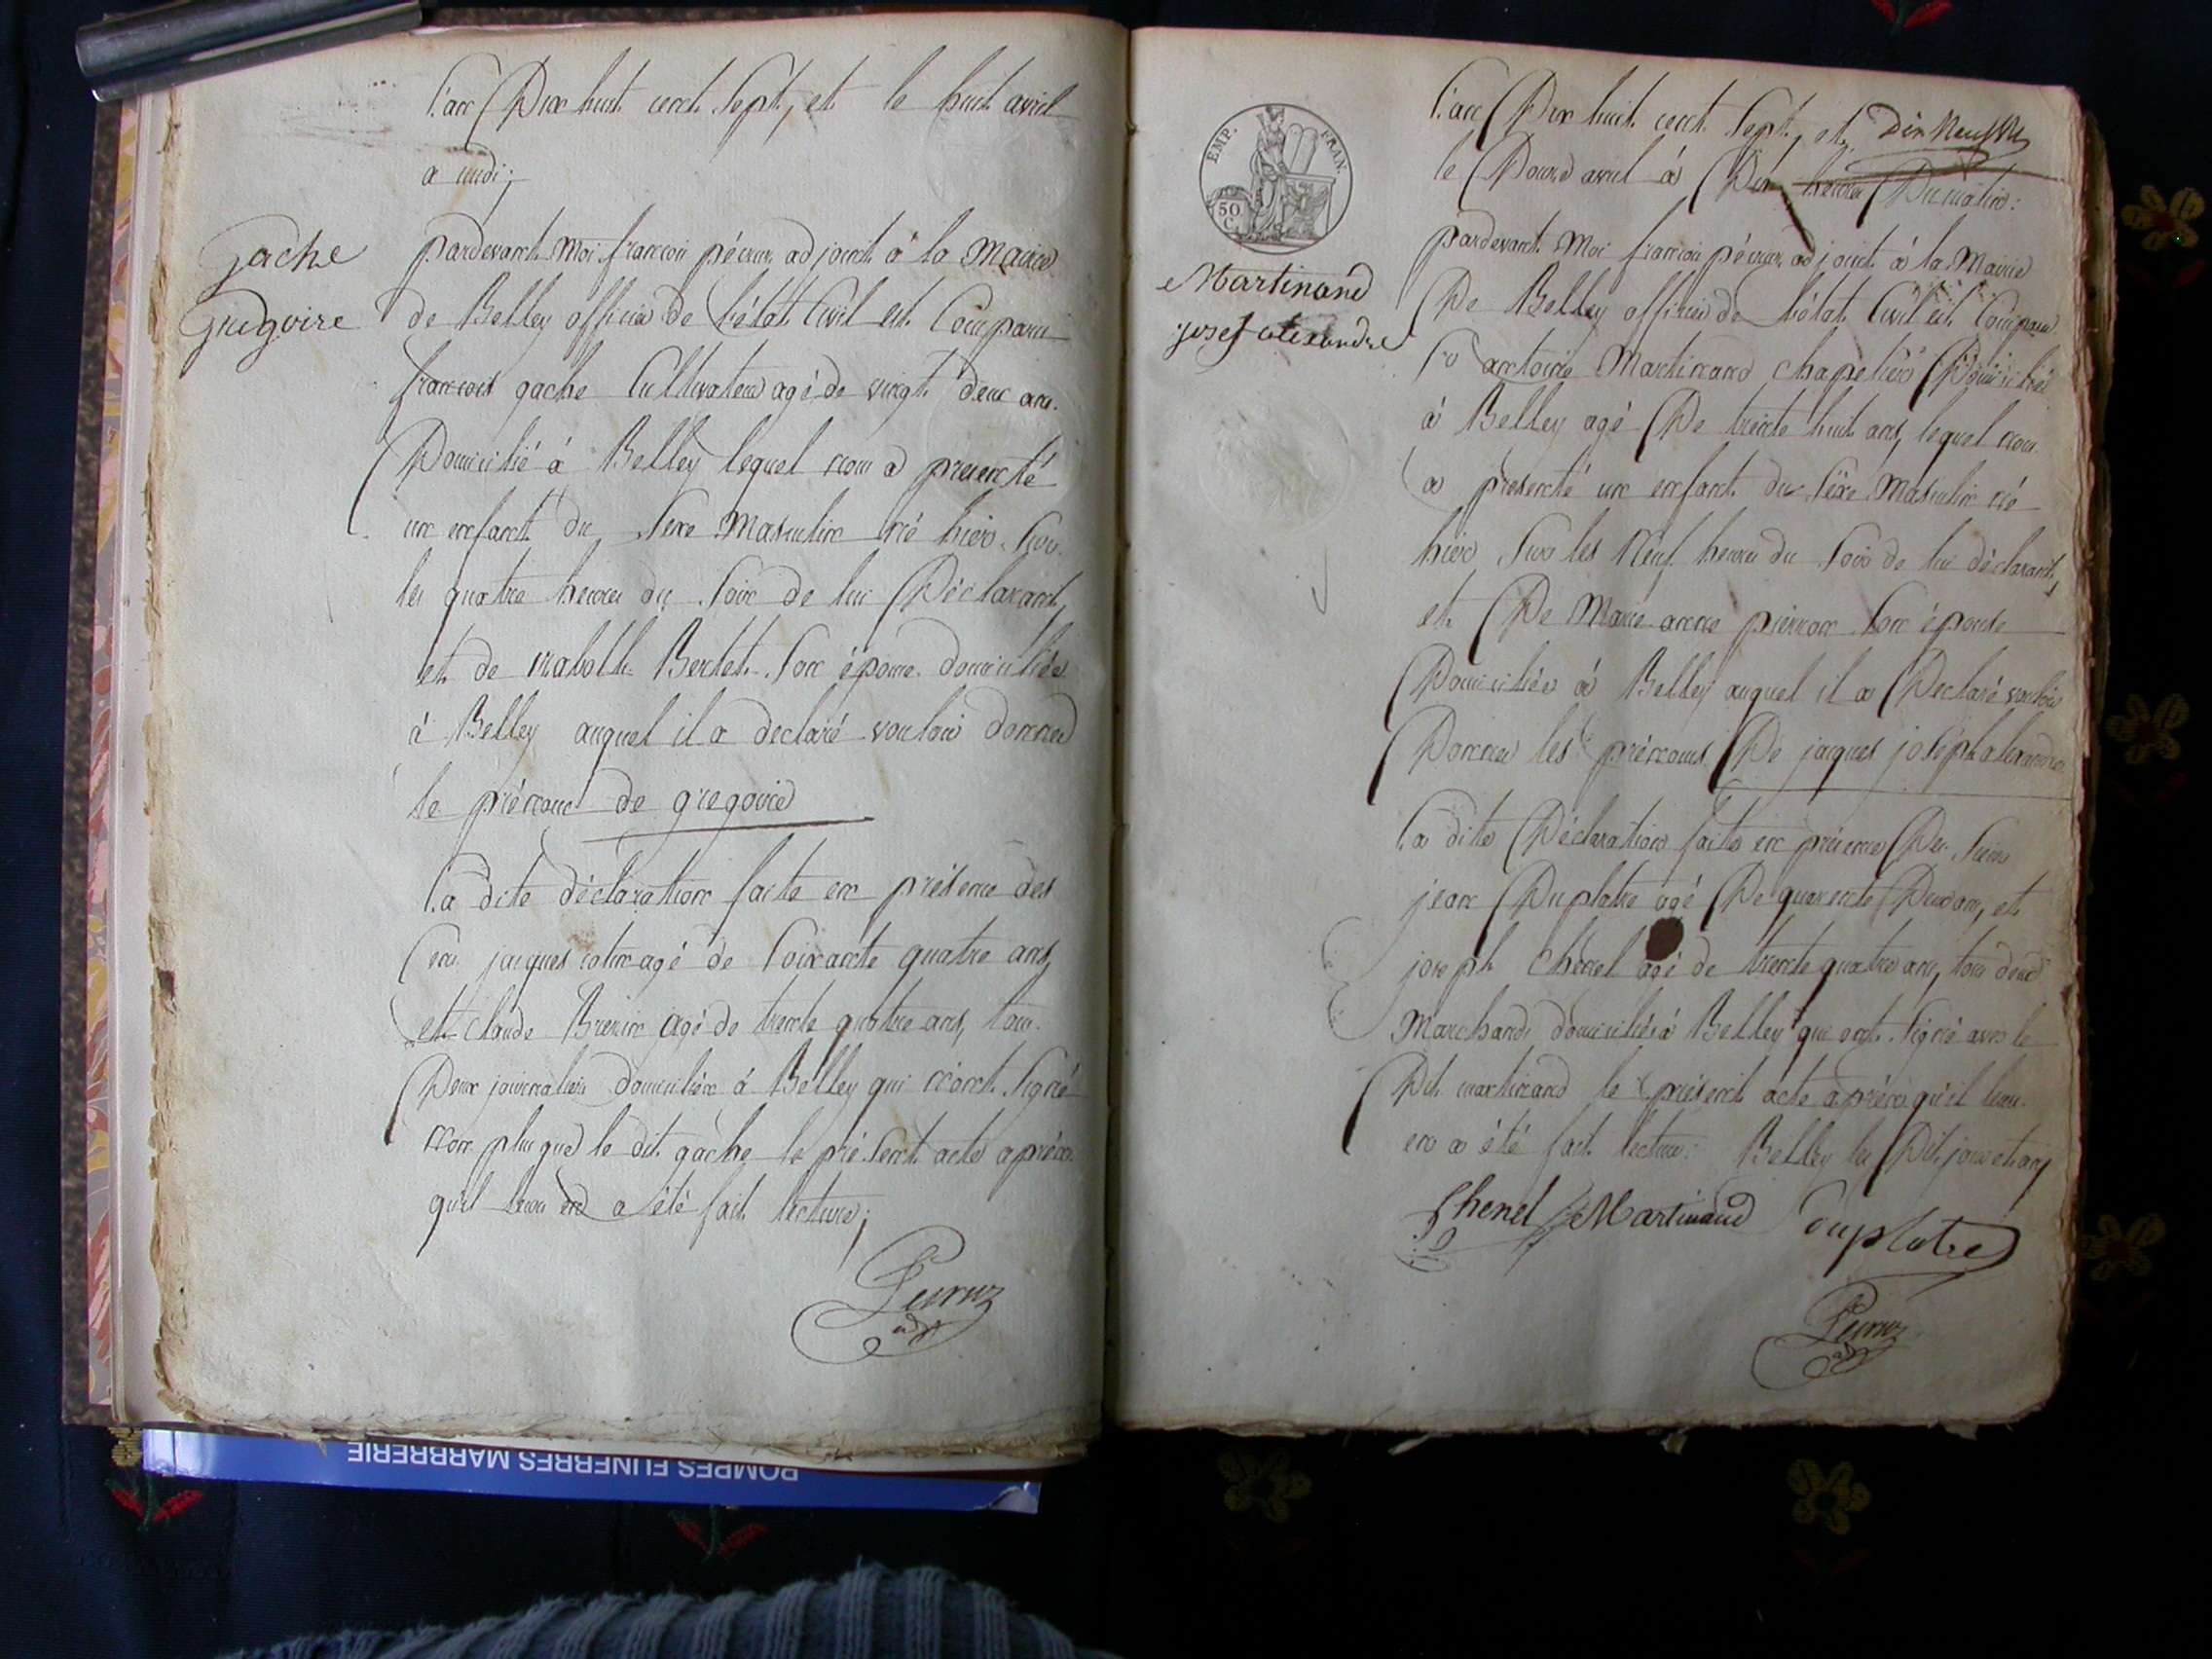 L'an Dix huit cent Sept, et le huit avril
a midi;
gache
gregoire
pardevant Moi françois pécruz adjoint à la Mairie
de Belley officier de l'état Civil est Comparu
françois gache Cultivateur agé de vingt deux ans
Domicilié à Belley lequel nous a presenté
un enfant du Sexe Masculin né hier Sur
les quatre heures du Soir de lui Déclarant,
et de Bertet Son épouse domiciliée
à Belley auquel il a declaré vouloir donner
le prénom de gregoire
La dite déclaration faite en présence des
jacques agé de Soixante quatre ans,
et claude agé de trente quatre ans, tous
Deux journaliers domiciliés à Belley qui n'ont Signé
non plus que le dit gache le présent acte après
qu'il leur en a été fait lecture;
Pecruz
adj
EMP. FRAN.
50 C.
Martinand
josef alexandre
L'an Dix huit cent Sept, et dix Neuf
le Douze avril à Dix heures Du matin:
pardevant Moi françois pécruz adjoint à la Mairie
De Belley officier de l'état Civil est Comparu
Sr antoine Martinand chapelier Domicilié
à Belley agé De trente huit ans, lequel nous
a presenté un enfant du Sexe Masculin né
hier Sur les Neuf heures du Soir de lui déclarant,
et De Marie anne pierron Son épouse
Domiciliée à Belley auquel il a Declaré vouloir
Donner les prénoms De jacques joseph alexandre
La dite Déclaration faite en présence Des Sieurs
jean Duplatre agé De quarente Deux ans, et
joseph Chenel agé de trente quatre ans, tous deux
Marchands domiciliés à Belley qui ont Signé avec le
Dit martinand le présent acte après qu'il leur
en a été fait lecture: Belley les Dit jour et an
Chenel Martinand Duplatre
Pecruz
adj
POMPES FUNEBRES MARBRERIE